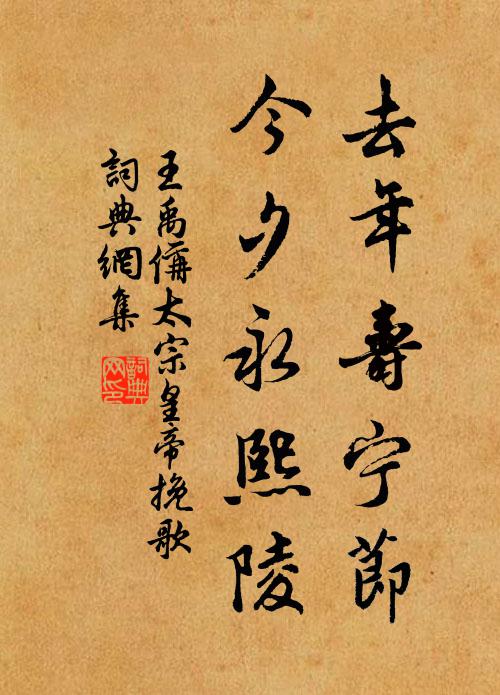 去年壽宁節
今夕永熙陵
王禹偁太宗皇帝挽歌
詞典網集
詞典网印